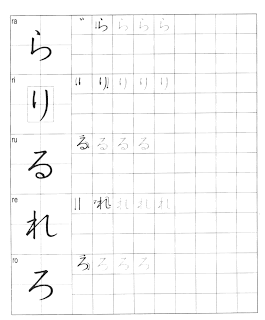 ra
ら ら ら ら ら
ri
り り り り り
ru
る る る る る
re
れ れ れ れ れ
ro
ろ ろ ろ ろ ろ